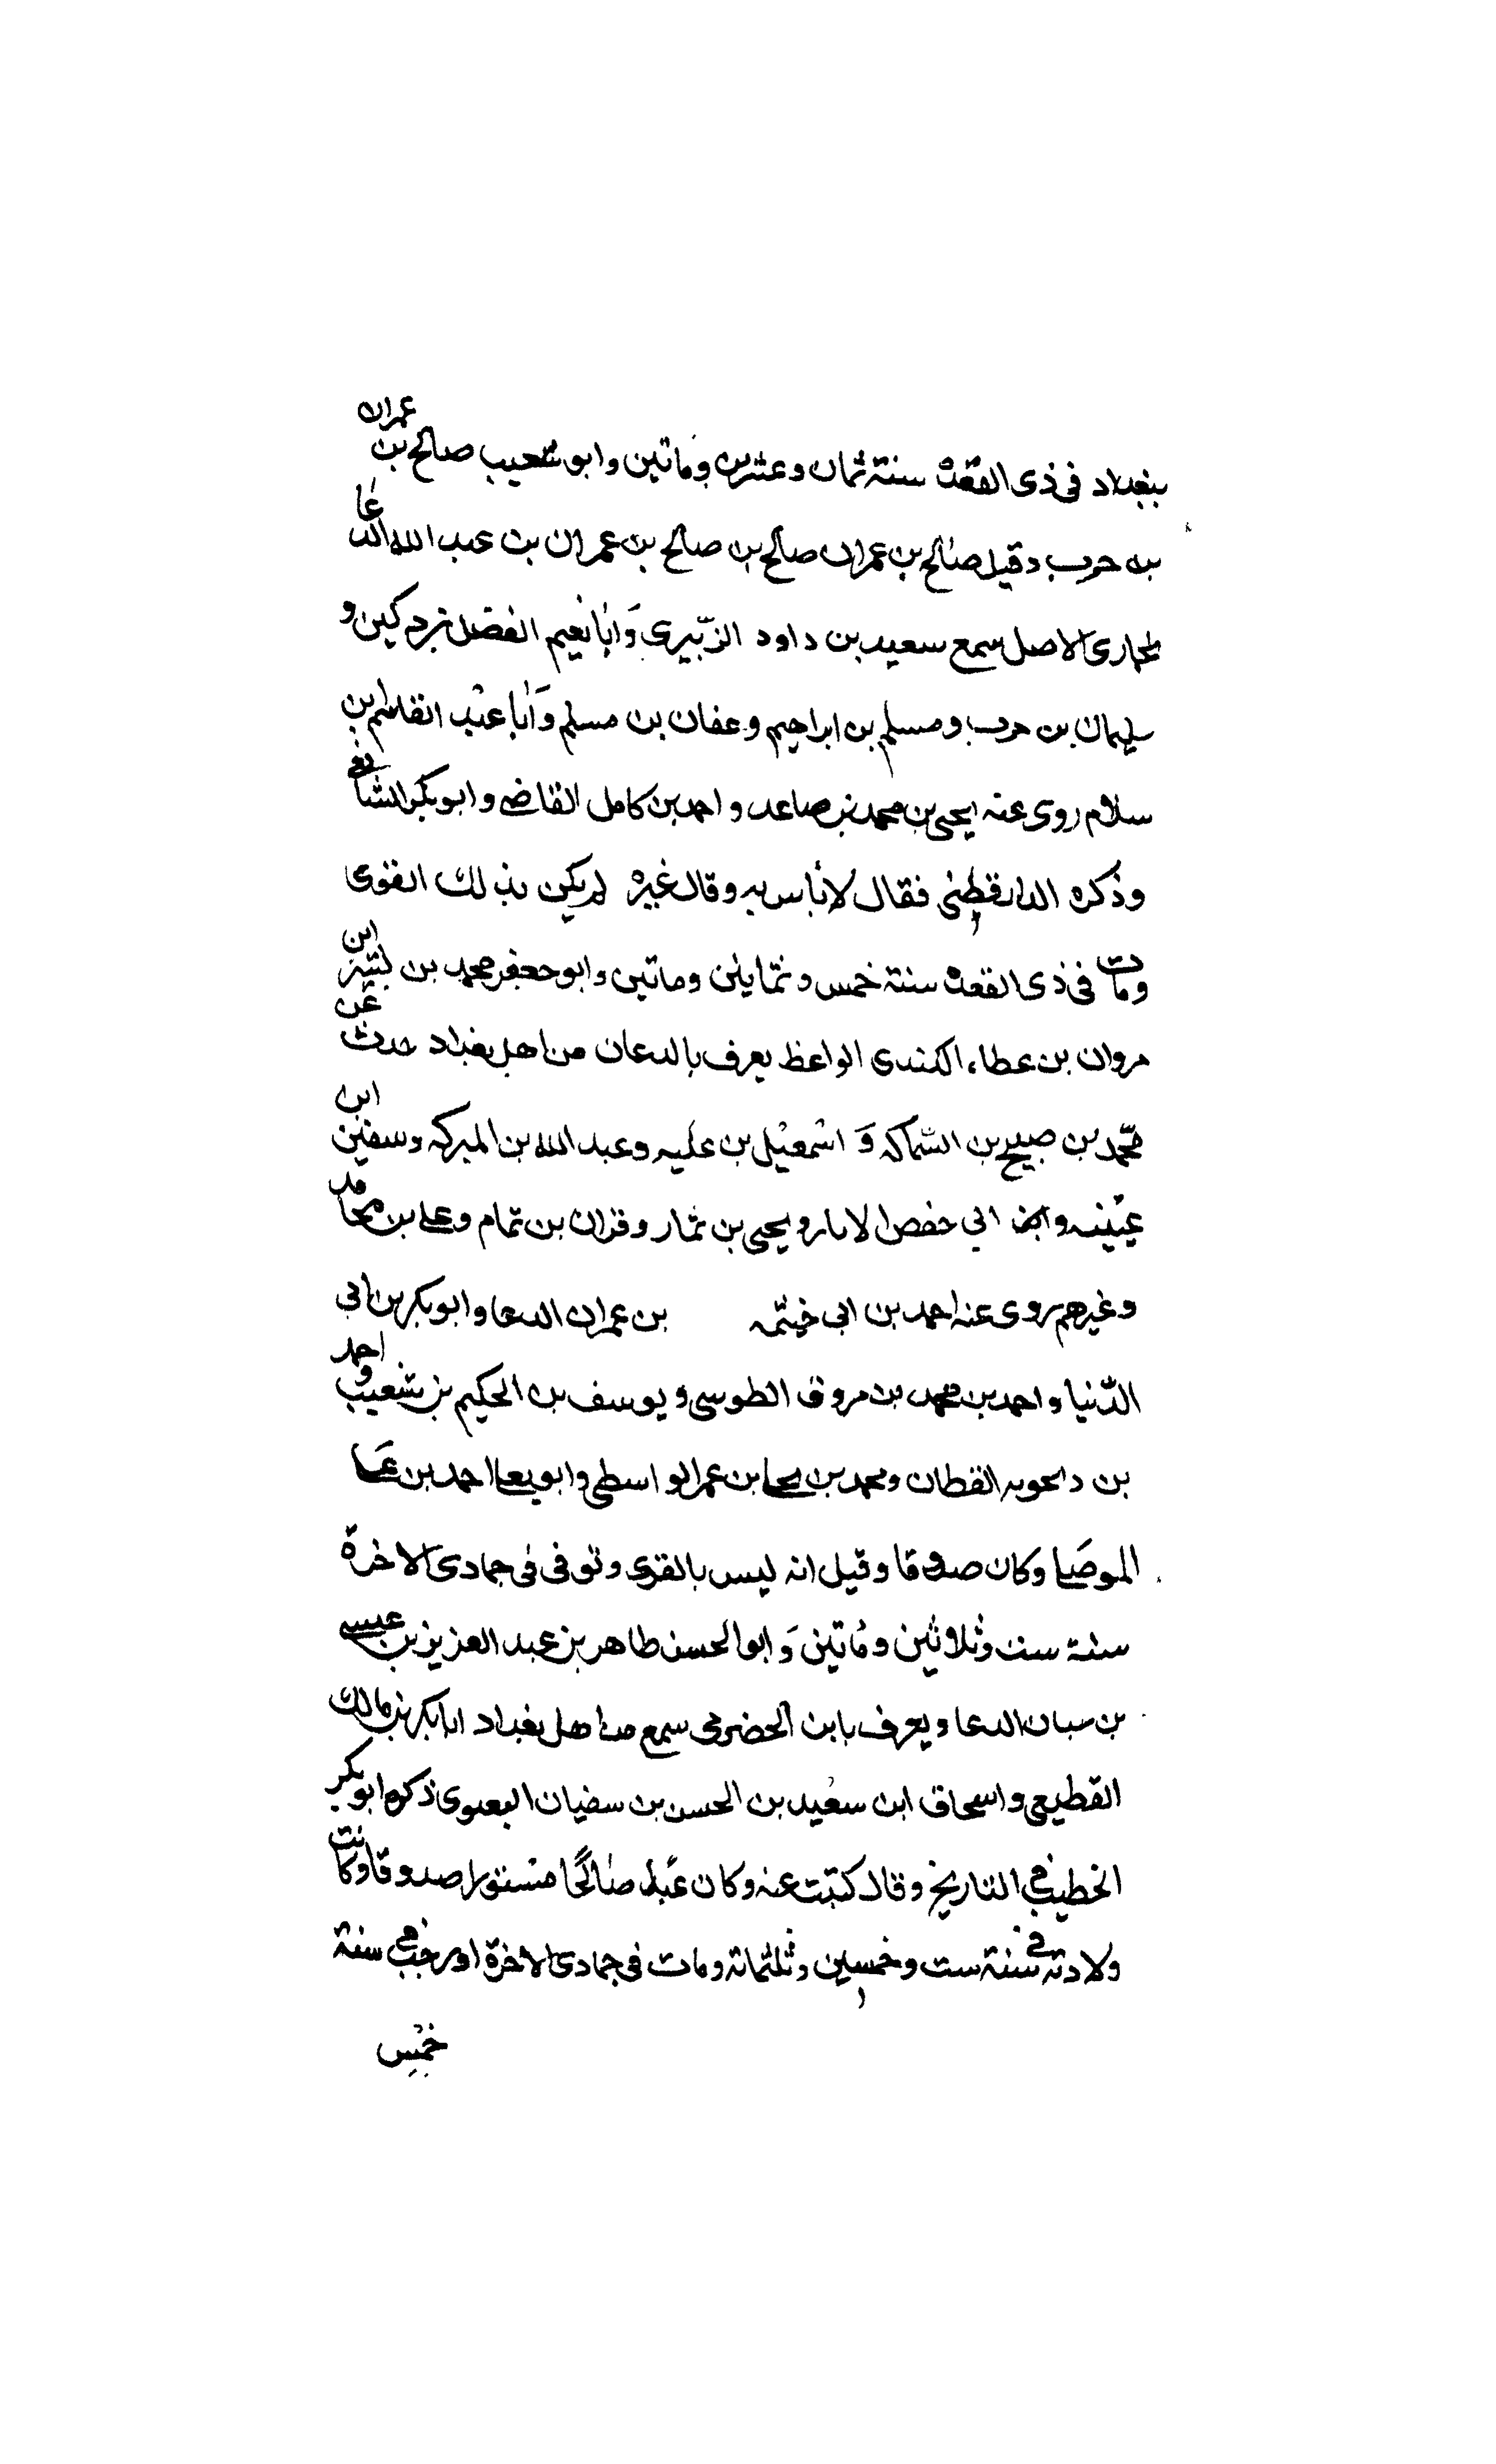 ببغداد فى ذى القعدة سنة ثمان وعشرين وماتين وابو شعيب صالح بن عمران
بن حرب وقيل صالح بن عمران صالح بن صالح بن عمران بن عبد الله الدعا
بخارى الاصل سمع سعيد بن داود الزبيرى وَابا نعيم الفضل بن دكين و
سليمان بن حرب ومسلم بن ابراهيم وعفان بن مسلم وَابا عبيد القاسم بن
سلام روى عنه يحيى بن محمد بن صاعد واحمد بن كامل القاضى وابو بكر الشافعى
وذكره الدارقطنى فقال لا باس به وقال غيره لم يكن بذلك القوى
ومات فى ذى القعدة سنة خمس وثمانين وماتين وابو جعفر محمد بن ابن
مروان بن عطاء الكندى الواعظ يعرف بالدعان من اهل بغداد حدث عن
محمد بن صبيح بن السّماك وَ اسمعيل بن عليه وعبد الله بن المبرك وسفين ابن
عيينه ابى حفص الابار ويحيى بن وقران بن تمام وعلى بن مجاهد
وغيرهم روى عنه احمد بن ابى خيثمه بن عمران الدعا وابو بكر بن ابى
الدّنيا واحمد بن محمد بن مروق الطوسى ويوسف بن الحكيم بن شعيب واحمد
بن القطان ومحمد بن بن عمر الواسطى وابو يعلى احمد بن على
الموصلى وكان صدوقا وقيل انه ليس بالقوى وتوفى فى جمادى الاخرة
سنة ست وثلاثين وماتين وَ ابو الحسن طاهر بن عبد العزيز بن عيسى
بن سبان الدعا ويعرف بابن الحضرمى سمع من اهل بغداد ابا بكر بن مالك
القطيعى واسحاق ابن سعيد بن الحسن بن سفيان ذكره ابو بكر
الخطيب فى التاريخ وقال كتبت عنه وكان عبدا صالحًا مستورا صدوقا وكانت
ولادته فى سنة ست وخمسين وثلثماىة ومات فى جمادى الاخرة او رجب فى سنة
خمس